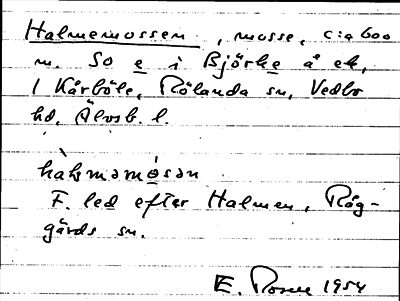 Halmemossen, mosse, c:a 600
m. SO e i Björke å ek,
1 Kårböle, Rölanda sn, Vedbo
hd, Älvsb. l.
halməmòsən
F. led efter Halmen, Råg-
gärds sn.
E. Rosell 1954